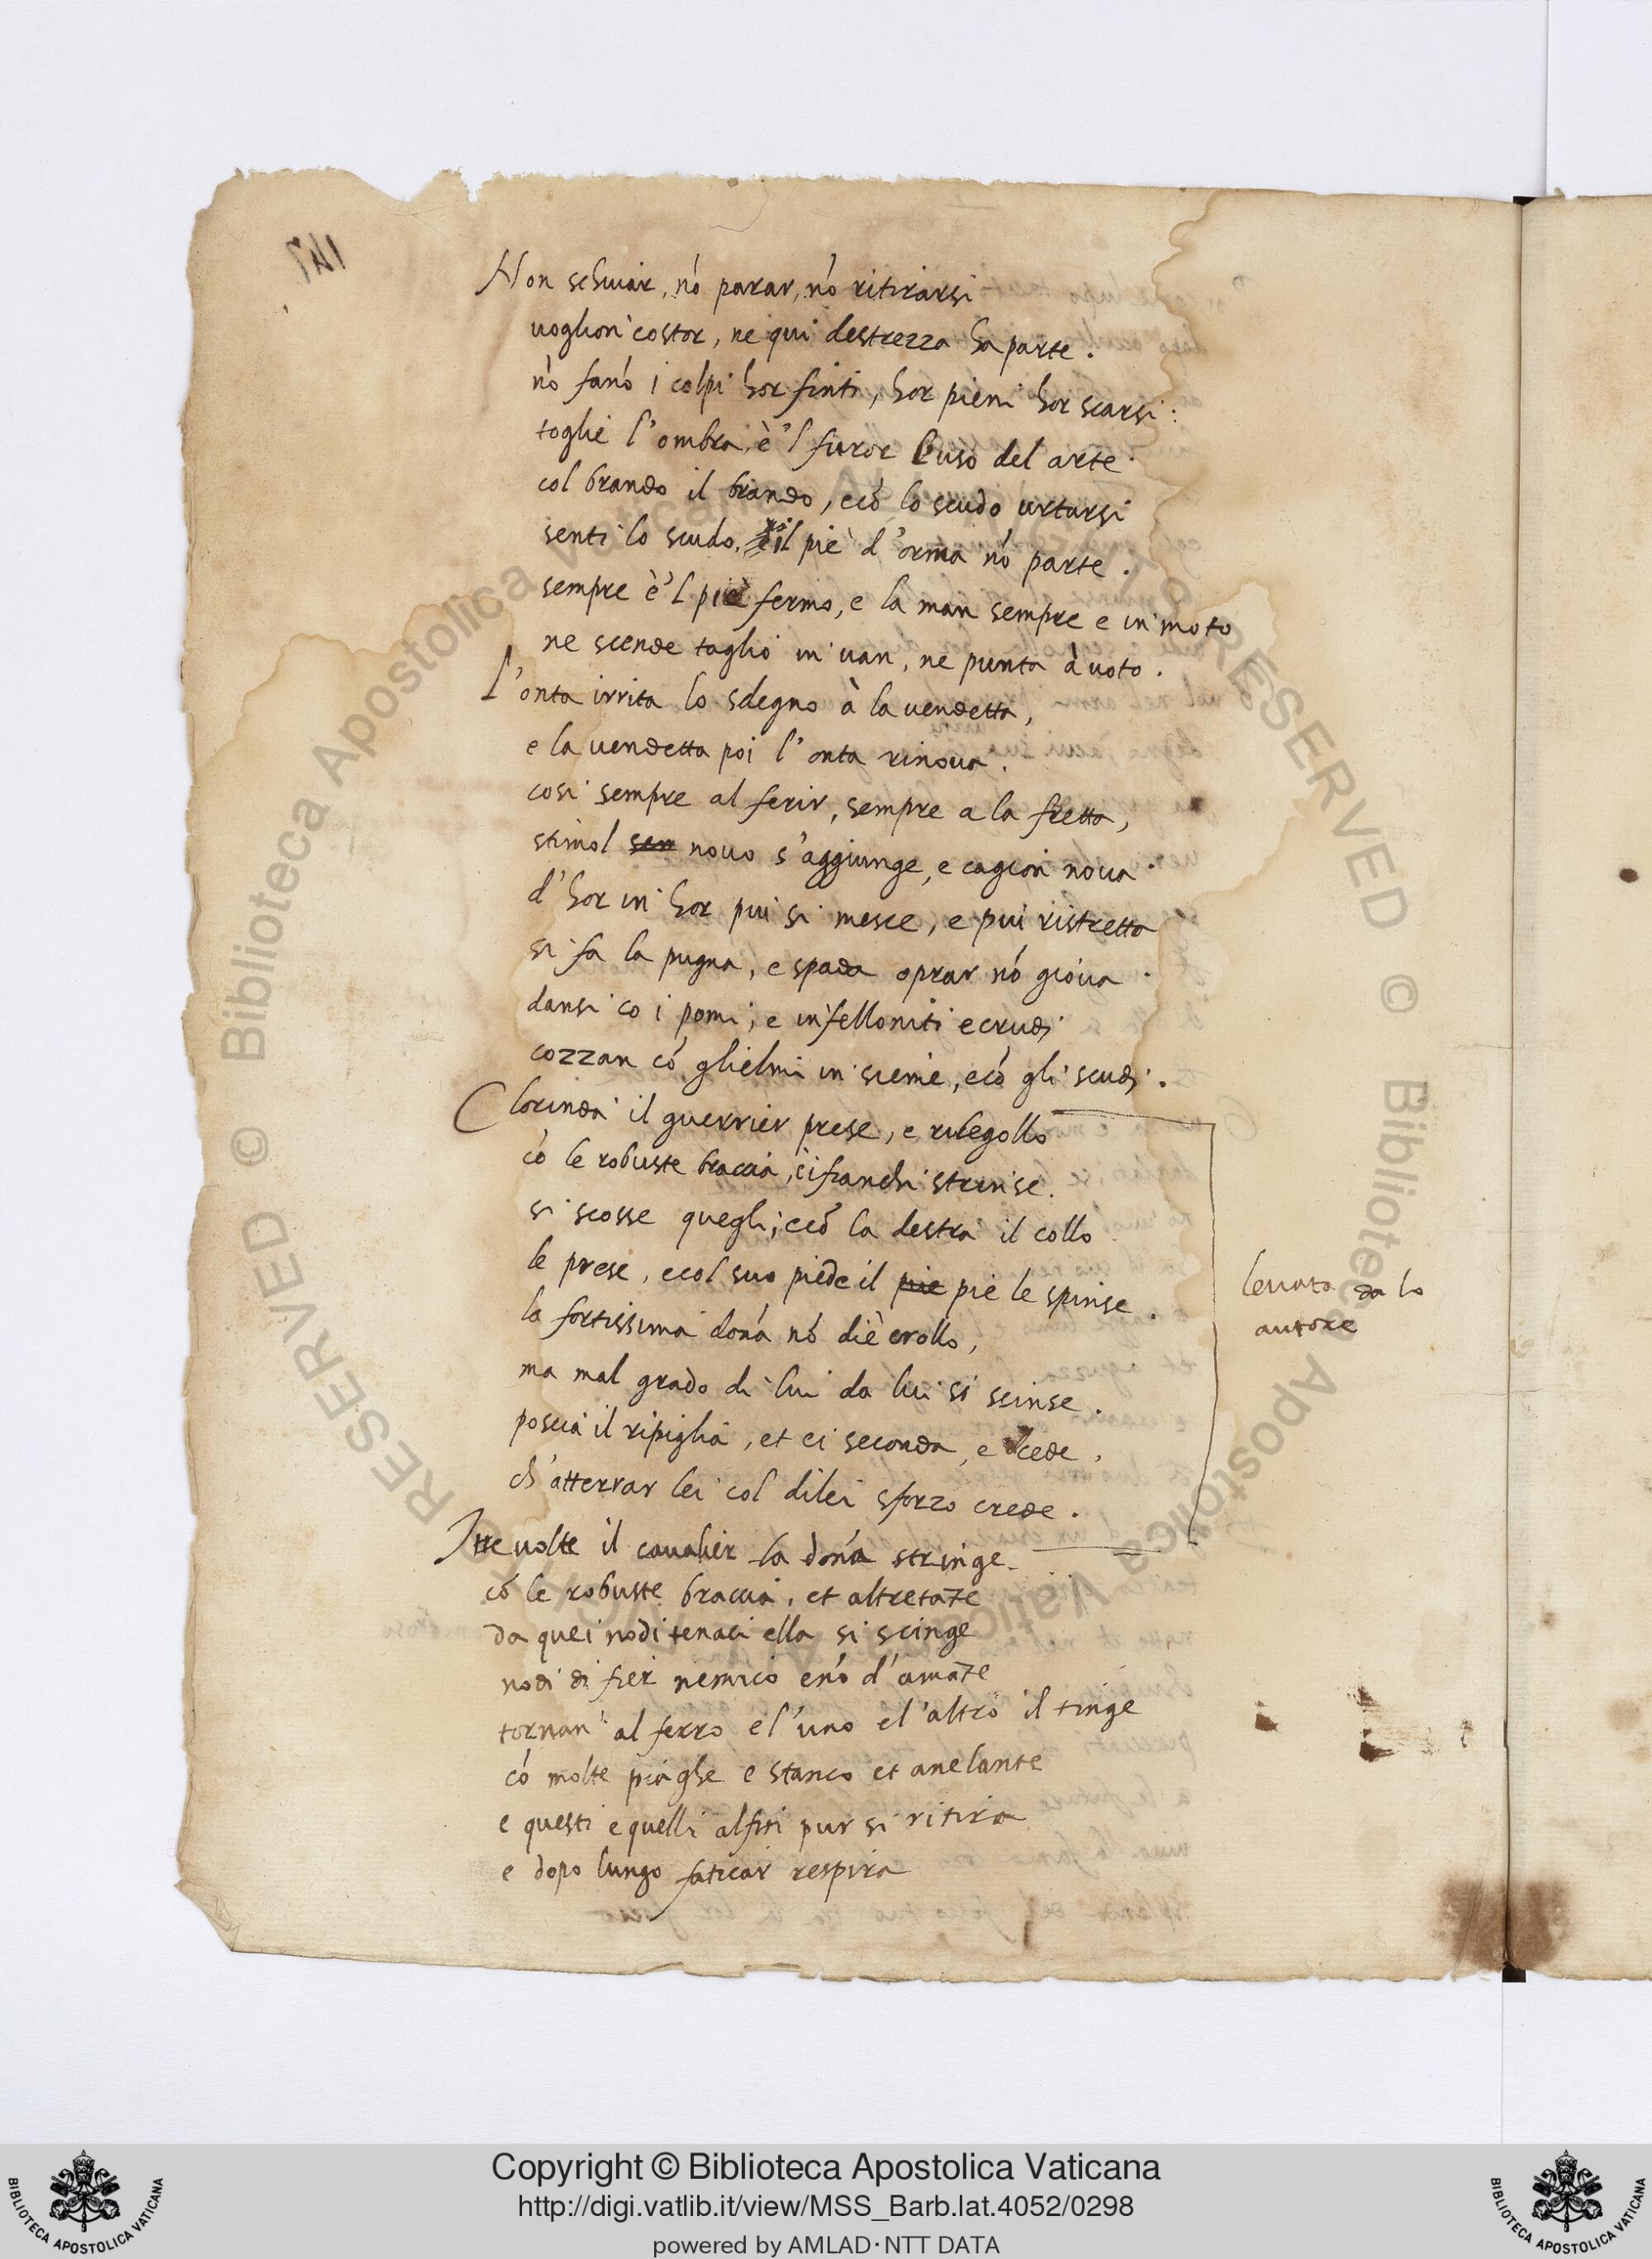 147
Non schiuar, nó parar, nó ritirarsi
uoglion costor, ne qui destrezza ha parte.
nó fanó i colpi hor finti, hor pieni hor scarsi:
toglie l'ombra, è'l furor l'uso del arte.
col brando il brando, ecó lo scudo urtarsi
senti lo scudo, il piè d'orma nó parte.
sempre è'l piè fermo, e la man sempre e in moto
ne scende taglio in uan, ne punta à uoto.
L'onta irrita lo sdegno à la uendetta,
e la uendetta poi l'onta rinoua.
cosi sempre al ferir, sempre a la fretta,
stimol sem nouo s'aggiunge, e cagion noua.
d'hor in hor piu si mesce, e piu ristretta
si fa la pugna, e spada oprar nó gioua.
dansi co i pomi; e infelloniti e crudi
cozzan có gli elmi in sieme, ecó gli scudi.
Clorinda il guerrier prese, e rilegollo
có le robuste braccia, e i fianchi strinse.
si scosse quegli; ecó la destra il collo
le prese, e col suo piede il pie pie le spinse.
la fortissima doná nó diè crollo,
ma mal grado di lui da lui si scinse.
poscia il ripiglia, et ei seconda, e cede.
ch'atterrar lei col di lei sforzo crede.
leuata da lo
autore
Tre uolte il caualier la doná stringe
có le robuste braccia, et altretãte
da quei nodi tenaci ella si scinge
nodi di fier nemico e nó d'amãte
tornan al ferro e l'uno e l'altro il tinge
có molte piaghe e stanco et anelante
e questi e quelli al fin pur si ritira
e dopo lungo faticar respira
© Biblioteca Apostolica Vaticana
RESERVED
Copyright © Biblioteca Apostolica Vaticana
http://digi.vatlib.it/view/MSS_Barb.lat.4052/0298
powered by AMLAD·NTT DATA
BIBLIOTECA APOSTOLICA VATICANA
BIBLIOTECA APOSTOLICA VATICANA